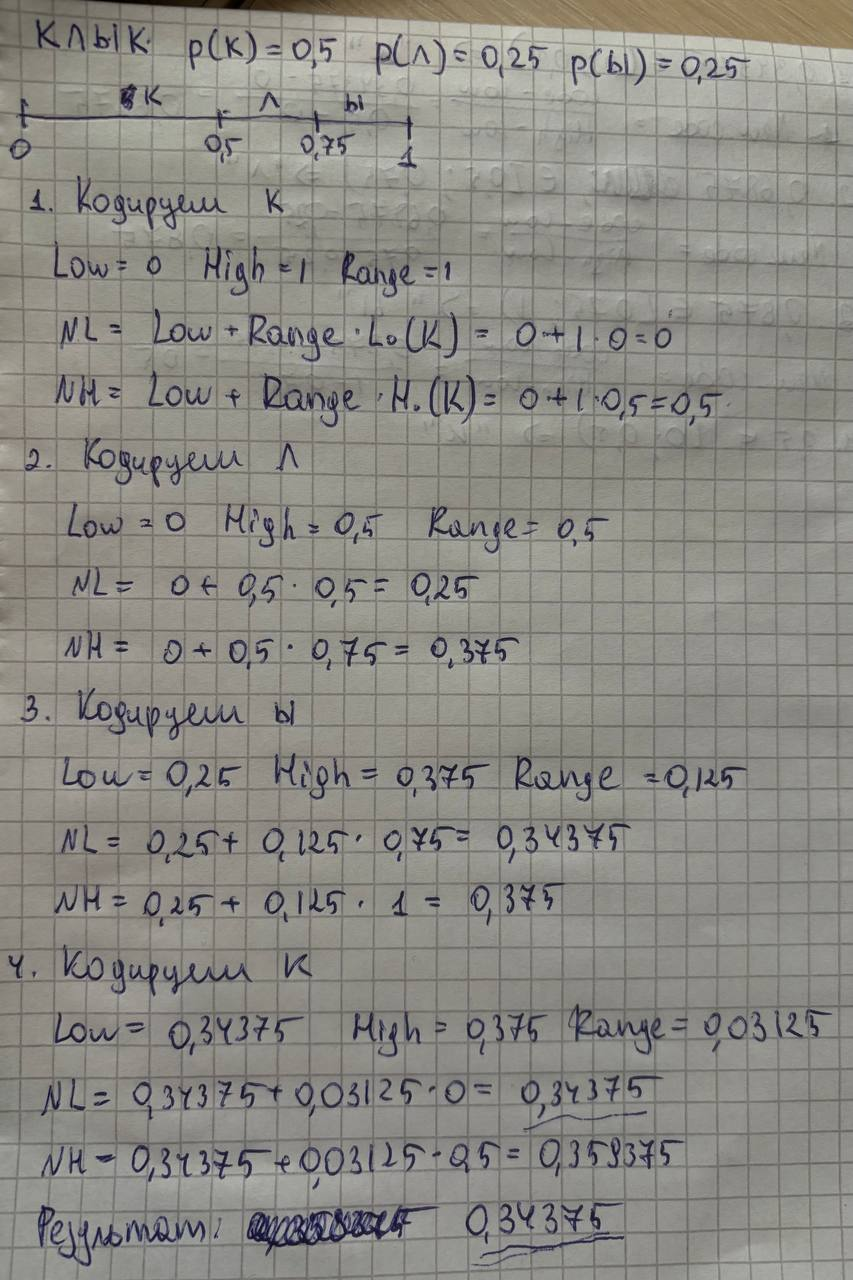 КЛЫК. p(К) = 0,5 p(Л) = 0,25 p(Ы) = 0,25
К Л Ы
0 0,5 0,75 1
1. Кодируем К
Low = 0 High = 1 Range = 1
NL = Low + Range · Lo(К) = 0 + 1 · 0 = 0
NH = Low + Range · Ho(К) = 0 + 1 · 0,5 = 0,5
2. Кодируем Л
Low = 0 High = 0,5 Range = 0,5
NL = 0 + 0,5 · 0,5 = 0,25
NH = 0 + 0,5 · 0,75 = 0,375
3. Кодируем Ы
Low = 0,25 High = 0,375 Range = 0,125
NL = 0,25 + 0,125 · 0,75 = 0,34375
NH = 0,25 + 0,125 · 1 = 0,375
4. Кодируем К
Low = 0,34375 High = 0,375 Range = 0,03125
NL = 0,34375 + 0,03125 · 0 = 0,34375
NH = 0,34375 + 0,03125 · 0,5 = 0,359375
Результат: 0,34375